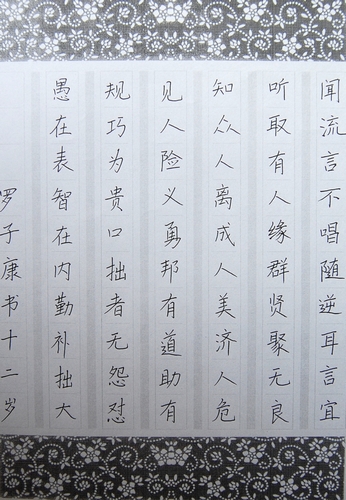 闻流言不唱随逆耳言宜
听取有人缘群贤聚无良
知众人离成人美济人危
见人险义勇邦有道助有
规巧为贵口拙者无怨怼
愚在表智在内勤补拙大
罗子康书十二岁